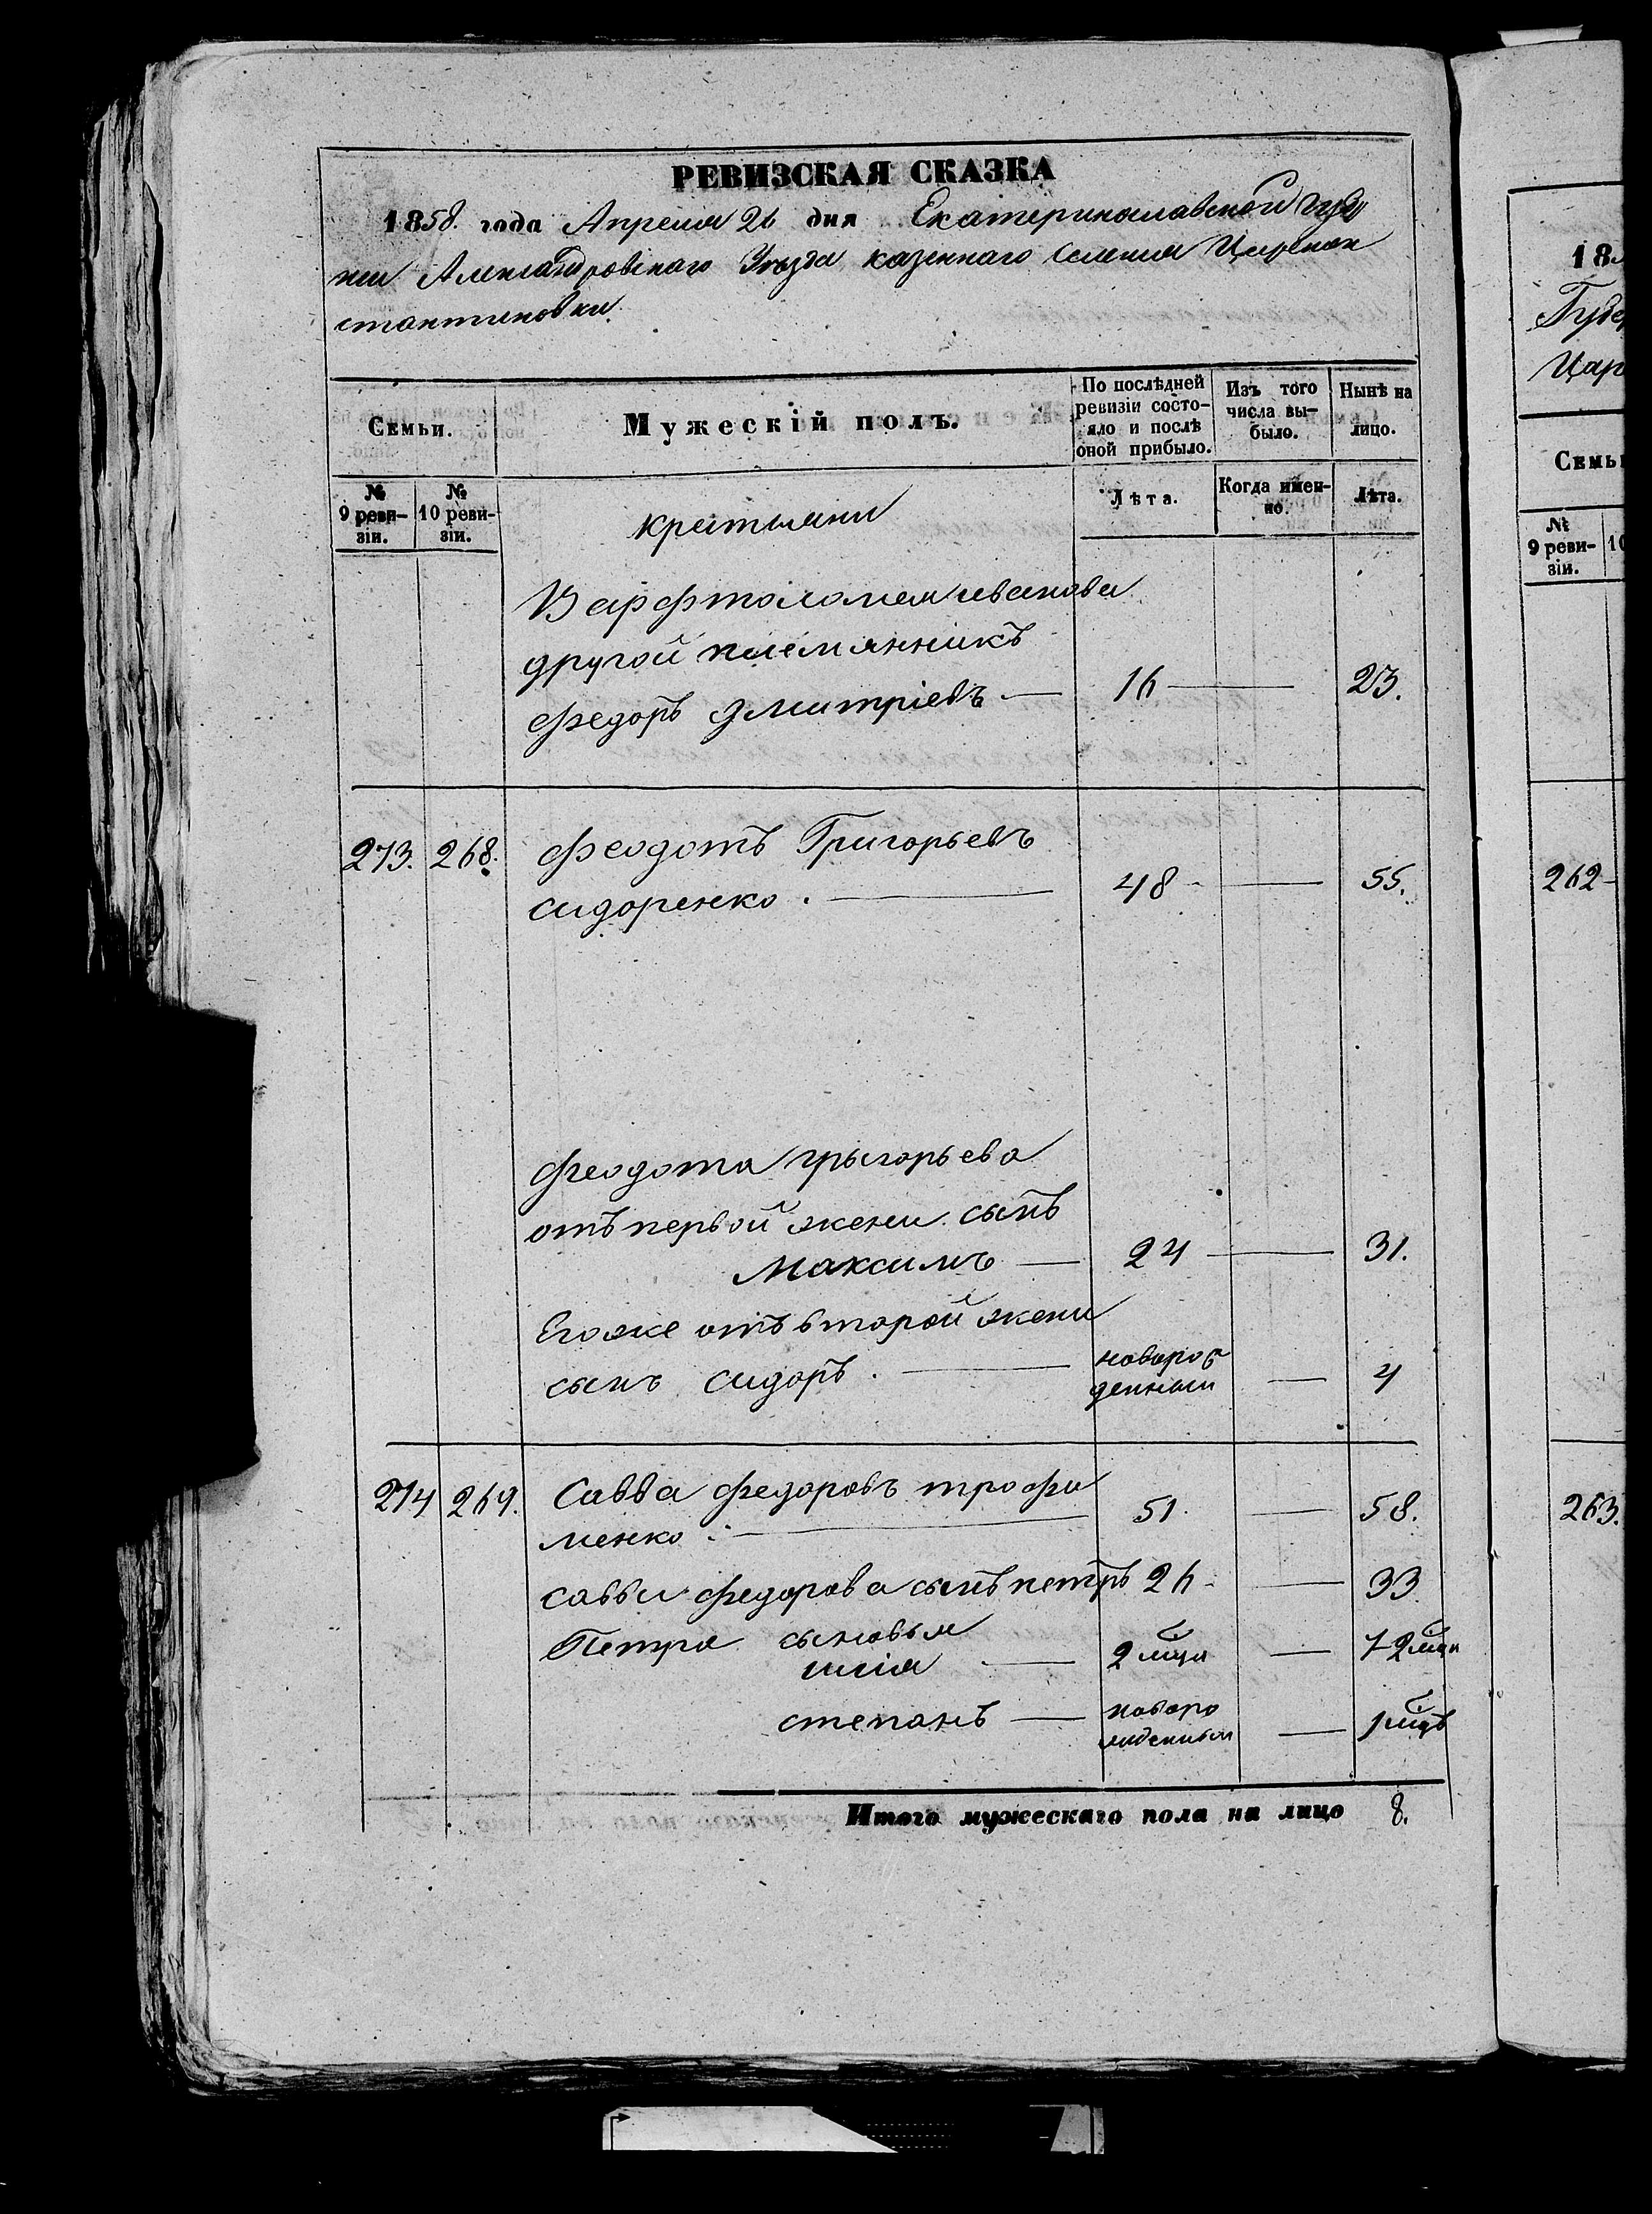 РЕВИЗСКАЯ СКАЗКА
1858. года Апреля 26 дня Екатеринославской губер
нии Александровскаго Уезда казеннаго селения Цареконс
тантиновки.
Семьи.
Мужескій полъ.
По послѣдней ревизіи состояло и послѣ оной прибыло.
Изъ того числа вы-было.
Нынѣ на лицо.
№ 9 реви-зіи.
№ 10 реви-зіи.
крестьяни
Лѣта.
Когда имен-но.
Лѣта.
Варфтоломея иванова
другой племянникъ
федоръ дмитріевъ — 16 — 23.
273. 268. феодотъ Григорьевъ
сидоренко. — 48 — 55.
феодота грыгорьева
отъ первой жени сынъ
максимъ — 24 — 31.
Егоже отъ второй жени
сынъ сидоръ. — новорож
денный — 4
274 269. Савва федоровъ трофи
менко. — 51. — 58.
саввы федорова сынъ петръ 26 — 33
Петра сыновья
илія — 2 мца — 7-2 мца
степанъ — новоро
жденный — 1 мцъ
Итого мужескаго пола на лицо 8.
18
Губер
Цар
Семьи
№ 9 реви-зіи.
10
262
263.